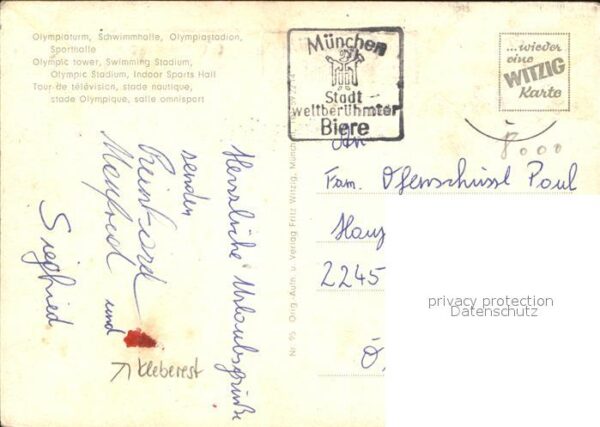 Olympiaturm, Schwimmhalle, Olympiastadion,
Sporthalle
Olympic tower, Swimming Stadium,
Olympic Stadium, Indoor Sports Hall
Tour de télévision, stade nautique,
stade Olympique, salle omnisport
München
Stadt
weltberühmter
Biere
...wieder
eine
WITZIG
Karte
8000
Herzliche Urlaubsgrüße
senden
Reinhard
Manfred und
Siegfried
Kleberest
Nr. 95 Orig.-Aufn. u. Verlag Fritz Witzig, Münch
An
Fam. Ofenschüssl Paul
Hau
2245
Ö
privacy protection
Datenschutz